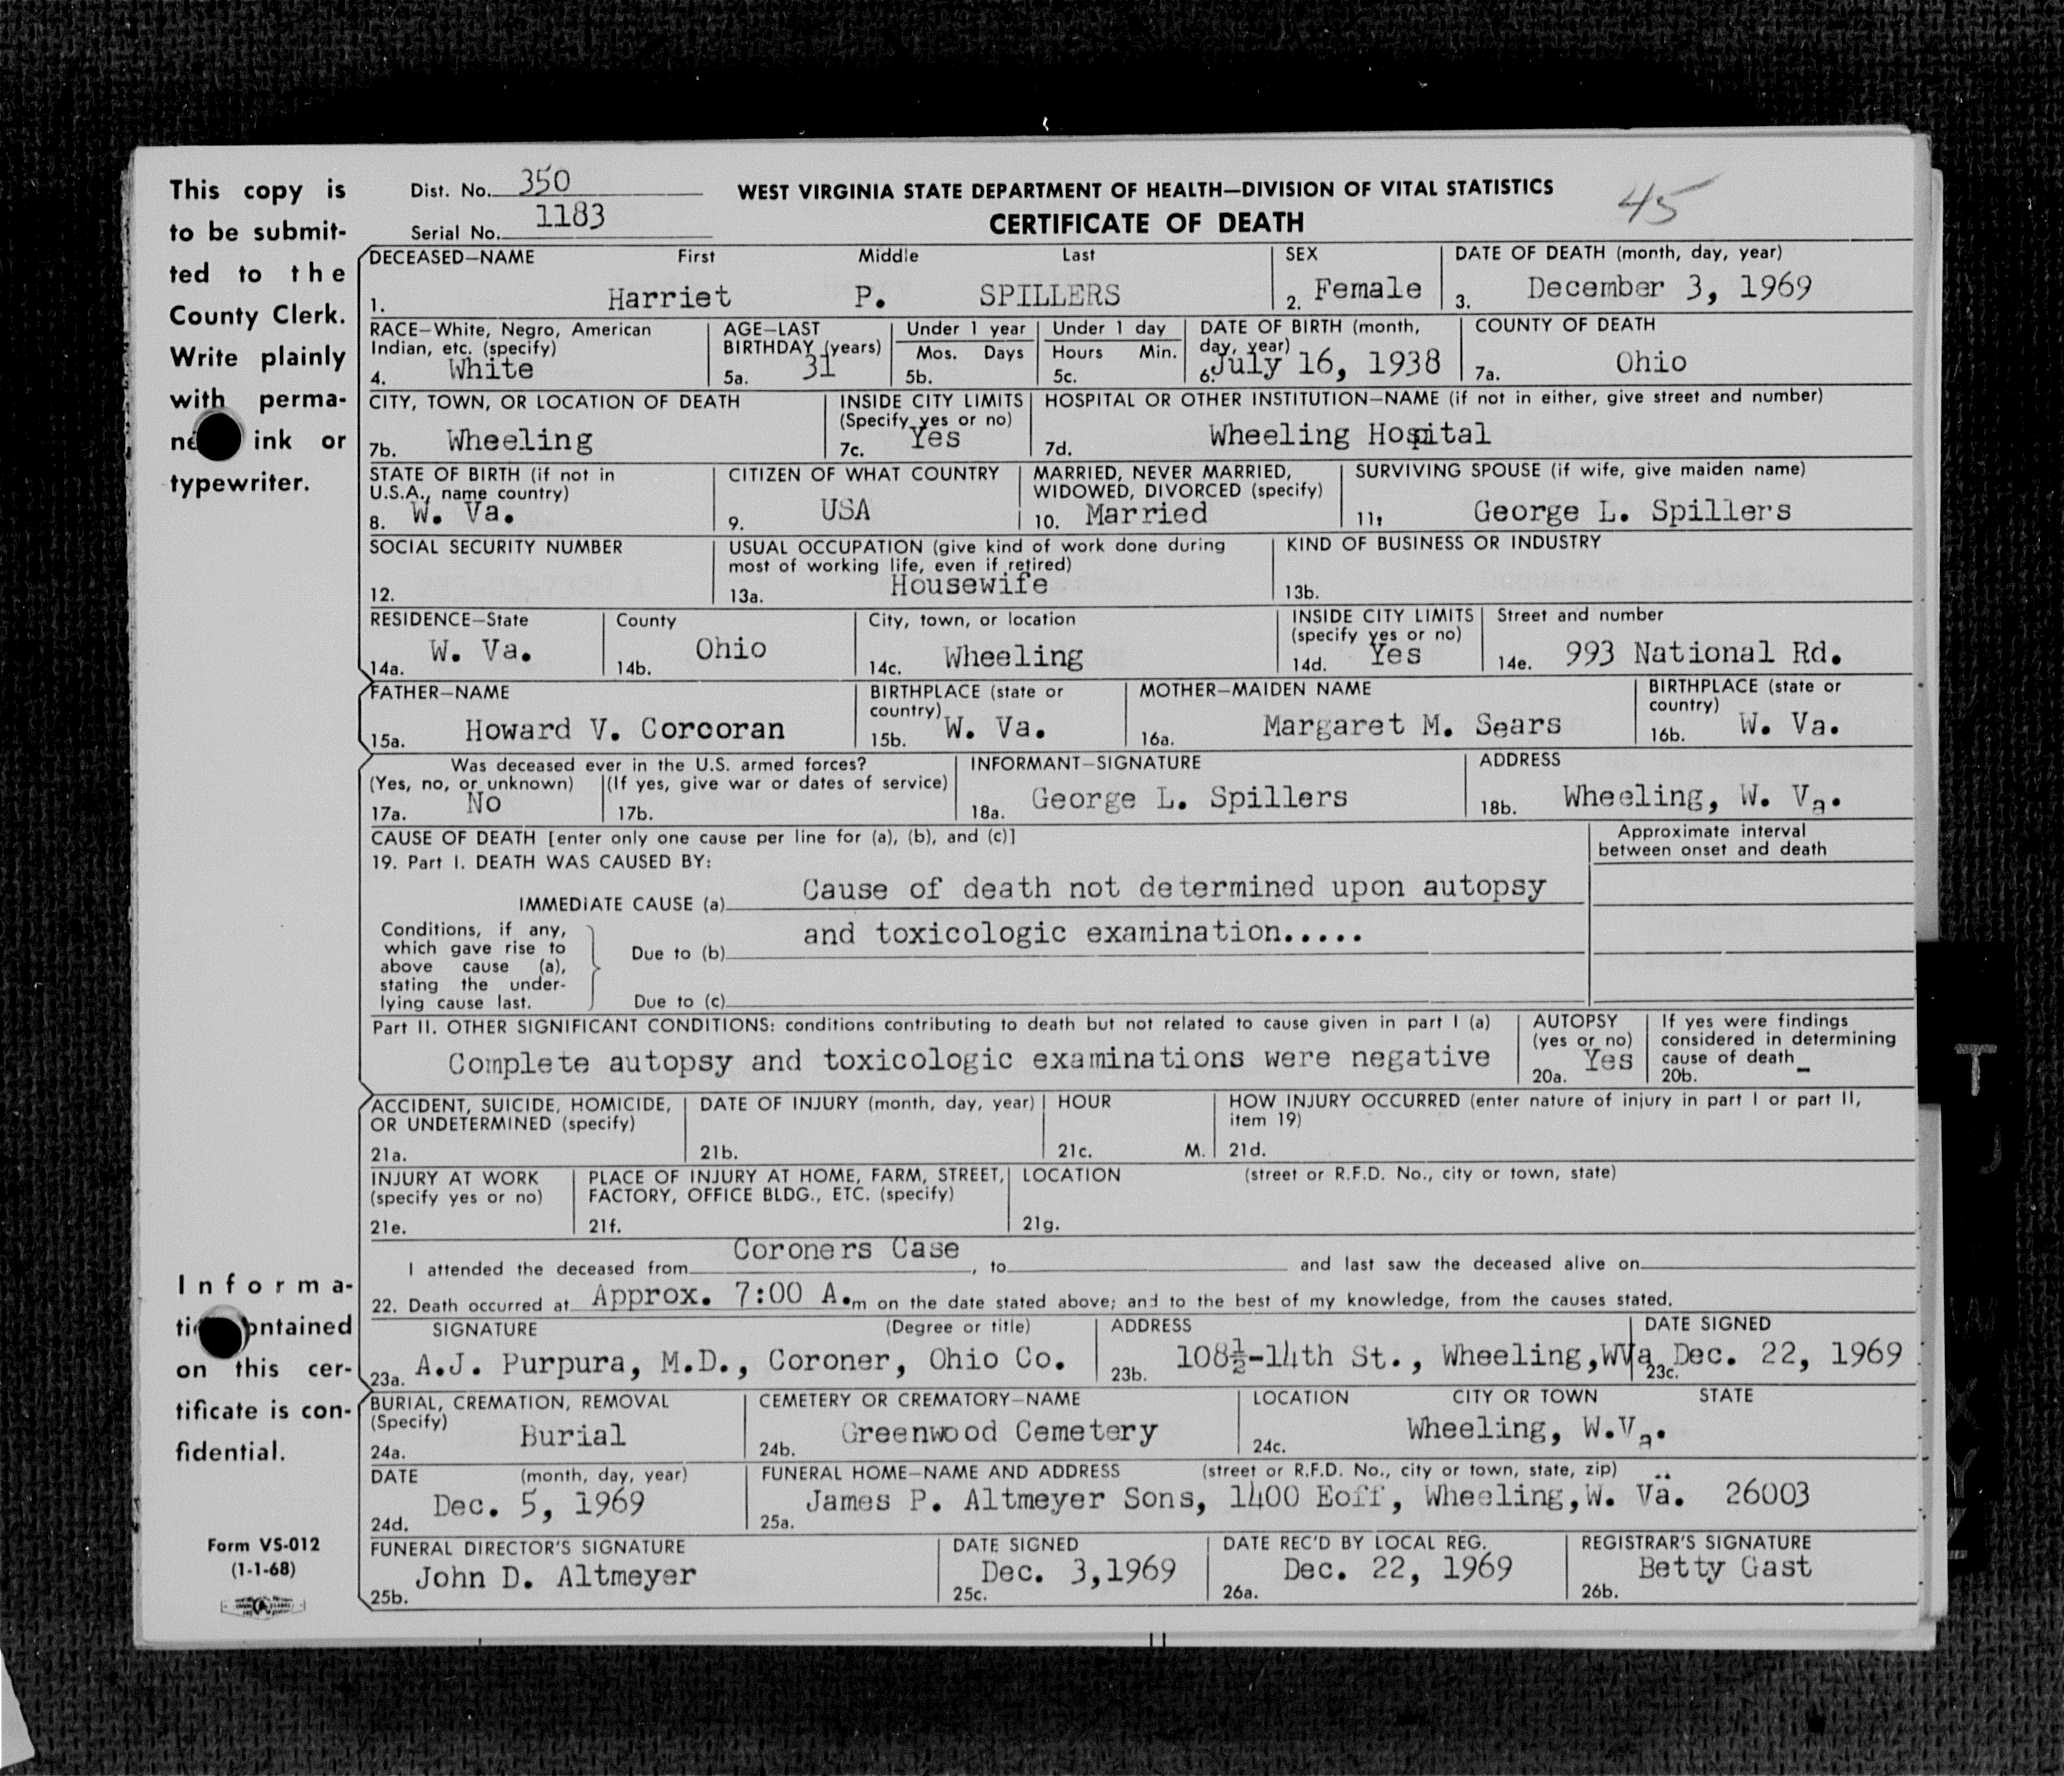 This copy is
to be submit-
ted to the
County Clerk.
Write plainly
with perma-
ink or
typewriter.
Dist. No. 350
Serial No. 1183
WEST VIRGINIA STATE DEPARTMENT OF HEALTH—DIVISION OF VITAL STATISTICS
CERTIFICATE OF DEATH
45
DECEASED—NAME First Middle Last SEX DATE OF DEATH (month, day, year)
1. Harriet P. SPILLERS 2. Female 3. December 3, 1969
RACE—White, Negro, American AGE—LAST Under 1 year Under 1 day DATE OF BIRTH (month, COUNTY OF DEATH
Indian, etc. (specify) BIRTHDAY (years) Mos. Days Hours Min. day, year)
4. White 5a. 31 5b. 5c. 6. July 16, 1938 7a. Ohio
CITY, TOWN, OR LOCATION OF DEATH INSIDE CITY LIMITS HOSPITAL OR OTHER INSTITUTION—NAME (if not in either, give street and number)
(Specify yes or no)
7b. Wheeling 7c. Yes 7d. Wheeling Hospital
STATE OF BIRTH (if not in CITIZEN OF WHAT COUNTRY MARRIED, NEVER MARRIED, SURVIVING SPOUSE (if wife, give maiden name)
U.S.A., name country) WIDOWED, DIVORCED (specify)
8. W. Va. 9. USA 10. Married 11. George L. Spillers
SOCIAL SECURITY NUMBER USUAL OCCUPATION (give kind of work done during KIND OF BUSINESS OR INDUSTRY
most of working life, even if retired)
12. 13a. Housewife 13b.
RESIDENCE—State County City, town, or location INSIDE CITY LIMITS Street and number
(specify yes or no)
14a. W. Va. 14b. Ohio 14c. Wheeling 14d. Yes 14e. 993 National Rd.
FATHER—NAME BIRTHPLACE (state or MOTHER—MAIDEN NAME BIRTHPLACE (state or
country) country)
15a. Howard V. Corcoran 15b. W. Va. 16a. Margaret M. Sears 16b. W. Va.
Was deceased ever in the U.S. armed forces? INFORMANT—SIGNATURE ADDRESS
(Yes, no, or unknown) (If yes, give war or dates of service)
17a. No 17b. 18a. George L. Spillers 18b. Wheeling, W. Va.
CAUSE OF DEATH [enter only one cause per line for (a), (b), and (c)] Approximate interval
between onset and death
19. Part I. DEATH WAS CAUSED BY:
IMMEDIATE CAUSE (a) Cause of death not determined upon autopsy
Conditions, if any,
which gave rise to
above cause (a),
stating the under-
lying cause last.
Due to (b) and toxicologic examination.....
Due to (c)
Part II. OTHER SIGNIFICANT CONDITIONS: conditions contributing to death but not related to cause given in part I (a) AUTOPSY If yes were findings
(yes or no) considered in determining
cause of death
Complete autopsy and toxicologic examinations were negative 20a. Yes 20b. -
ACCIDENT, SUICIDE, HOMICIDE, DATE OF INJURY (month, day, year) HOUR HOW INJURY OCCURRED (enter nature of injury in part I or part II,
OR UNDETERMINED (specify) item 19)
21a. 21b. 21c. M. 21d.
INJURY AT WORK PLACE OF INJURY AT HOME, FARM, STREET, LOCATION (street or R.F.D. No., city or town, state)
(specify yes or no) FACTORY, OFFICE BLDG., ETC. (specify)
21e. 21f. 21g.
I attended the deceased from Coroners Case, to and last saw the deceased alive on
22. Death occurred at Approx. 7:00 A.m on the date stated above; and to the best of my knowledge, from the causes stated.
SIGNATURE (Degree or title) ADDRESS DATE SIGNED
23a. A.J. Purpura, M.D., Coroner, Ohio Co. 23b. 108½-14th St., Wheeling,WVa 23c. Dec. 22, 1969
BURIAL, CREMATION, REMOVAL CEMETERY OR CREMATORY—NAME LOCATION CITY OR TOWN STATE
(Specify)
24a. Burial 24b. Greenwood Cemetery 24c. Wheeling, W.Va.
DATE (month, day, year) FUNERAL HOME—NAME AND ADDRESS (street or R.F.D. No., city or town, state, zip)
24d. Dec. 5, 1969 25a. James P. Altmeyer Sons, 1400 Eoff, Wheeling,W. Va. 26003
FUNERAL DIRECTOR'S SIGNATURE DATE SIGNED DATE REC'D BY LOCAL REG. REGISTRAR'S SIGNATURE
25b. John D. Altmeyer 25c. Dec. 3,1969 26a. Dec. 22, 1969 26b. Betty Gast
Informa-
ontained
on this cer-
tificate is con-
fidential.
Form VS-012
(1-1-68)
T